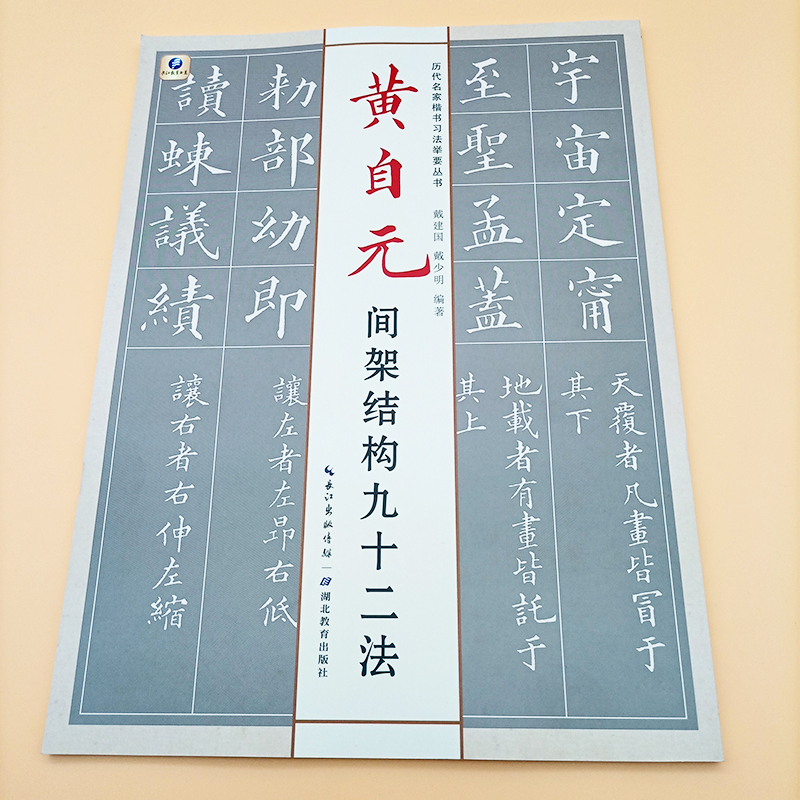 宇宙定甯
天覆者凡畫皆冒于
其下
至聖孟蓋
地載者有畫皆託于
其上
历代名家楷书习法举要丛书
戴建国 戴少明 编著
黄自元
间架结构九十二法
长江出版传媒
湖北教育出版社
勅部幼即
讓左者左昂右低
讀蝀議績
讓右者右伸左縮